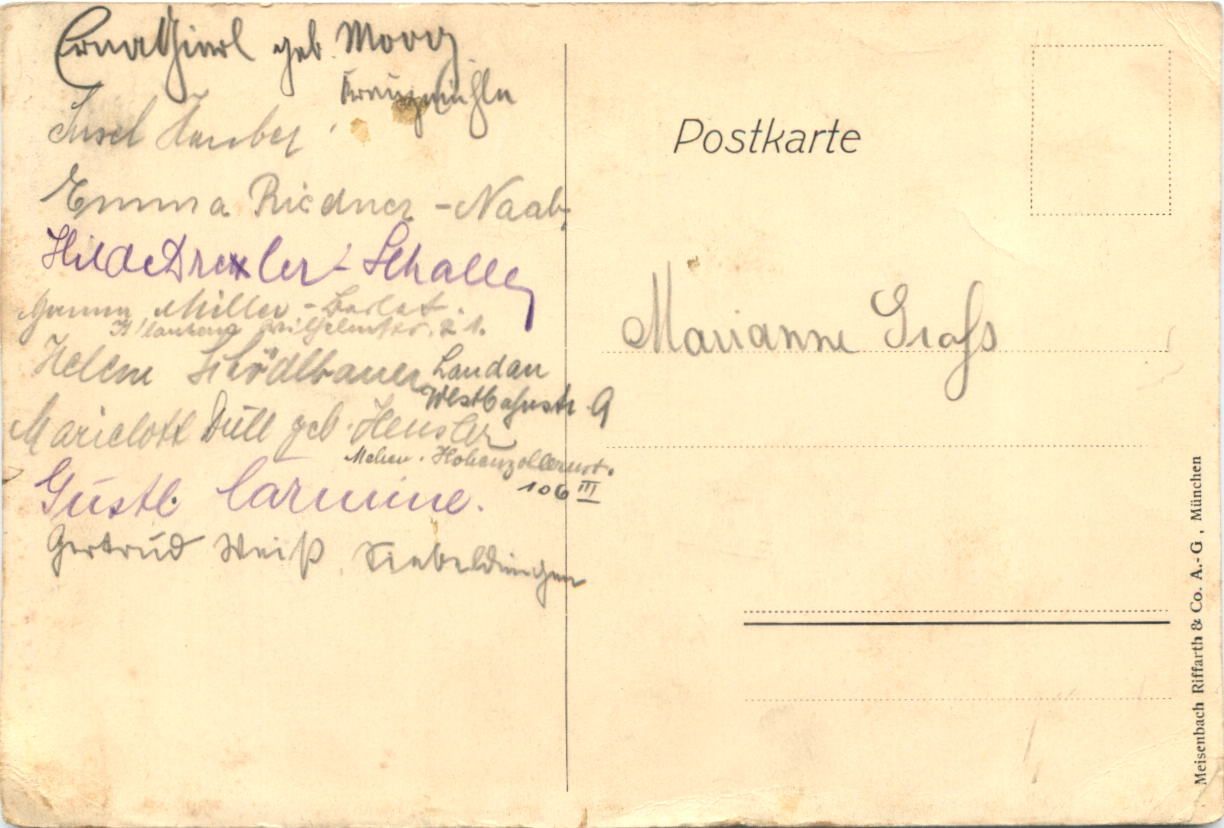 Erna Gierl geb. Moog
Insel Hauber
Emma Riedner - Naab
Hilde Drexler - Schalley
Miller -
Wilhelmstr. 21.
Helene Schödlbauer Landau
Westbahnstr. 9
Marielott Düll geb. Hensler
Mchen. Hohenzollernstr.
106 III
Gustl Carmine.
Gertrud Weiß. Siebeldingen
Postkarte
Marianne Groß
Meisenbach Riffarth & Co. A.-G., München